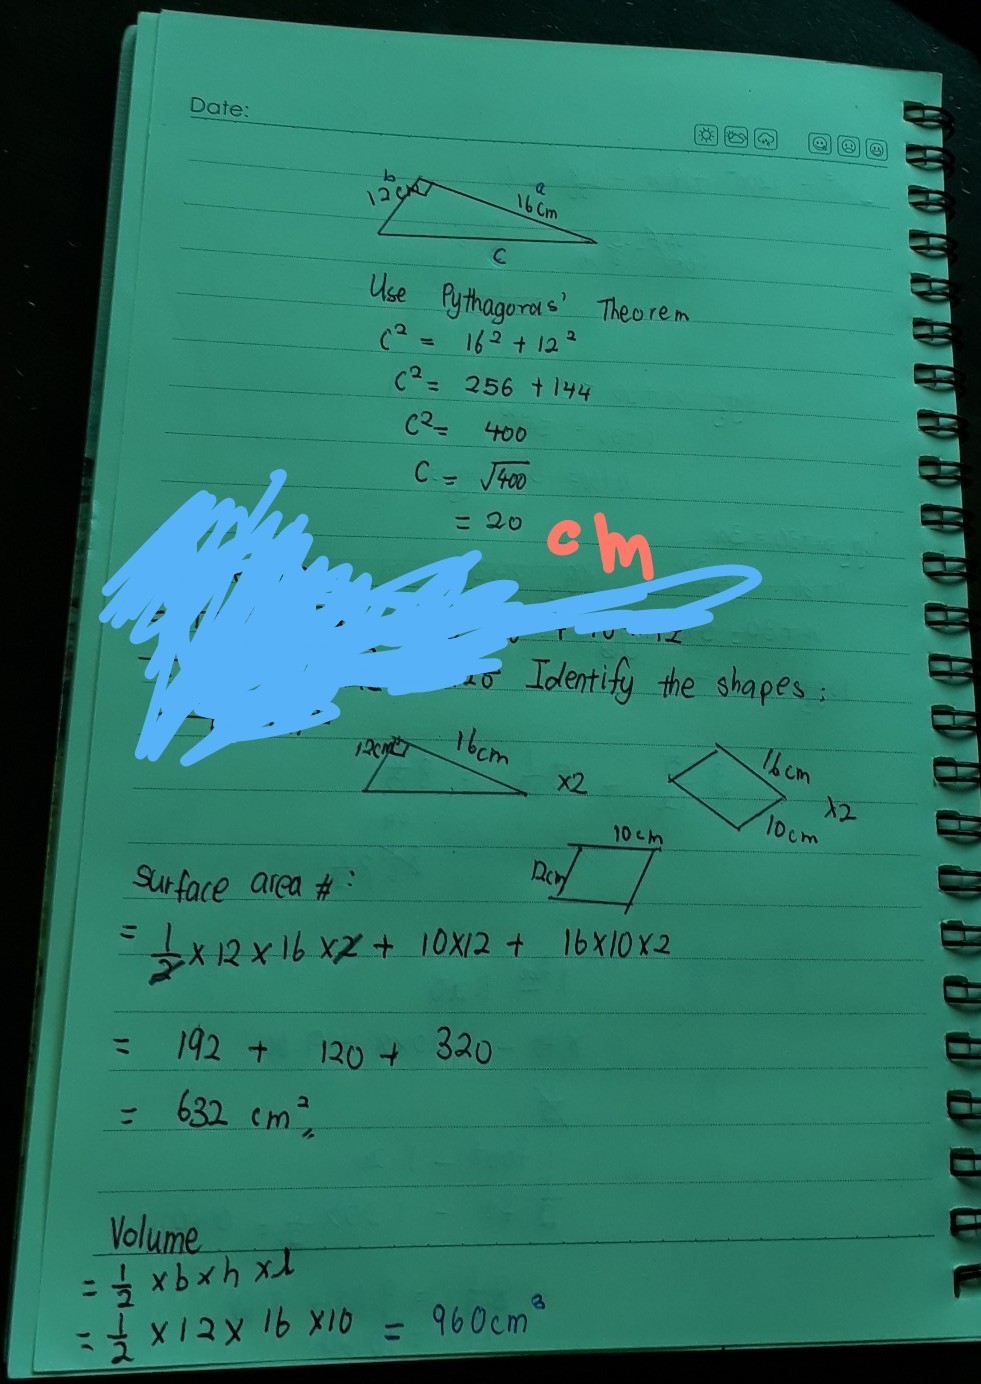 Date:
b
12cm
a
16cm
C
Use Pythagoras' Theorem
C² = 16² + 12²
C² = 256 + 144
C² = 400
C = √400
= 20 cm
Identify the shapes:
12cm 16cm ×2
16cm
10cm ×2
10cm
12cm
Surface area #:
= 1/2 × 12 × 16 × 2 + 10×12 + 16×10×2
= 192 + 120 + 320
= 632 cm²
Volume
= 1/2 × b × h × l
= 1/2 × 12 × 16 × 10 = 960cm³